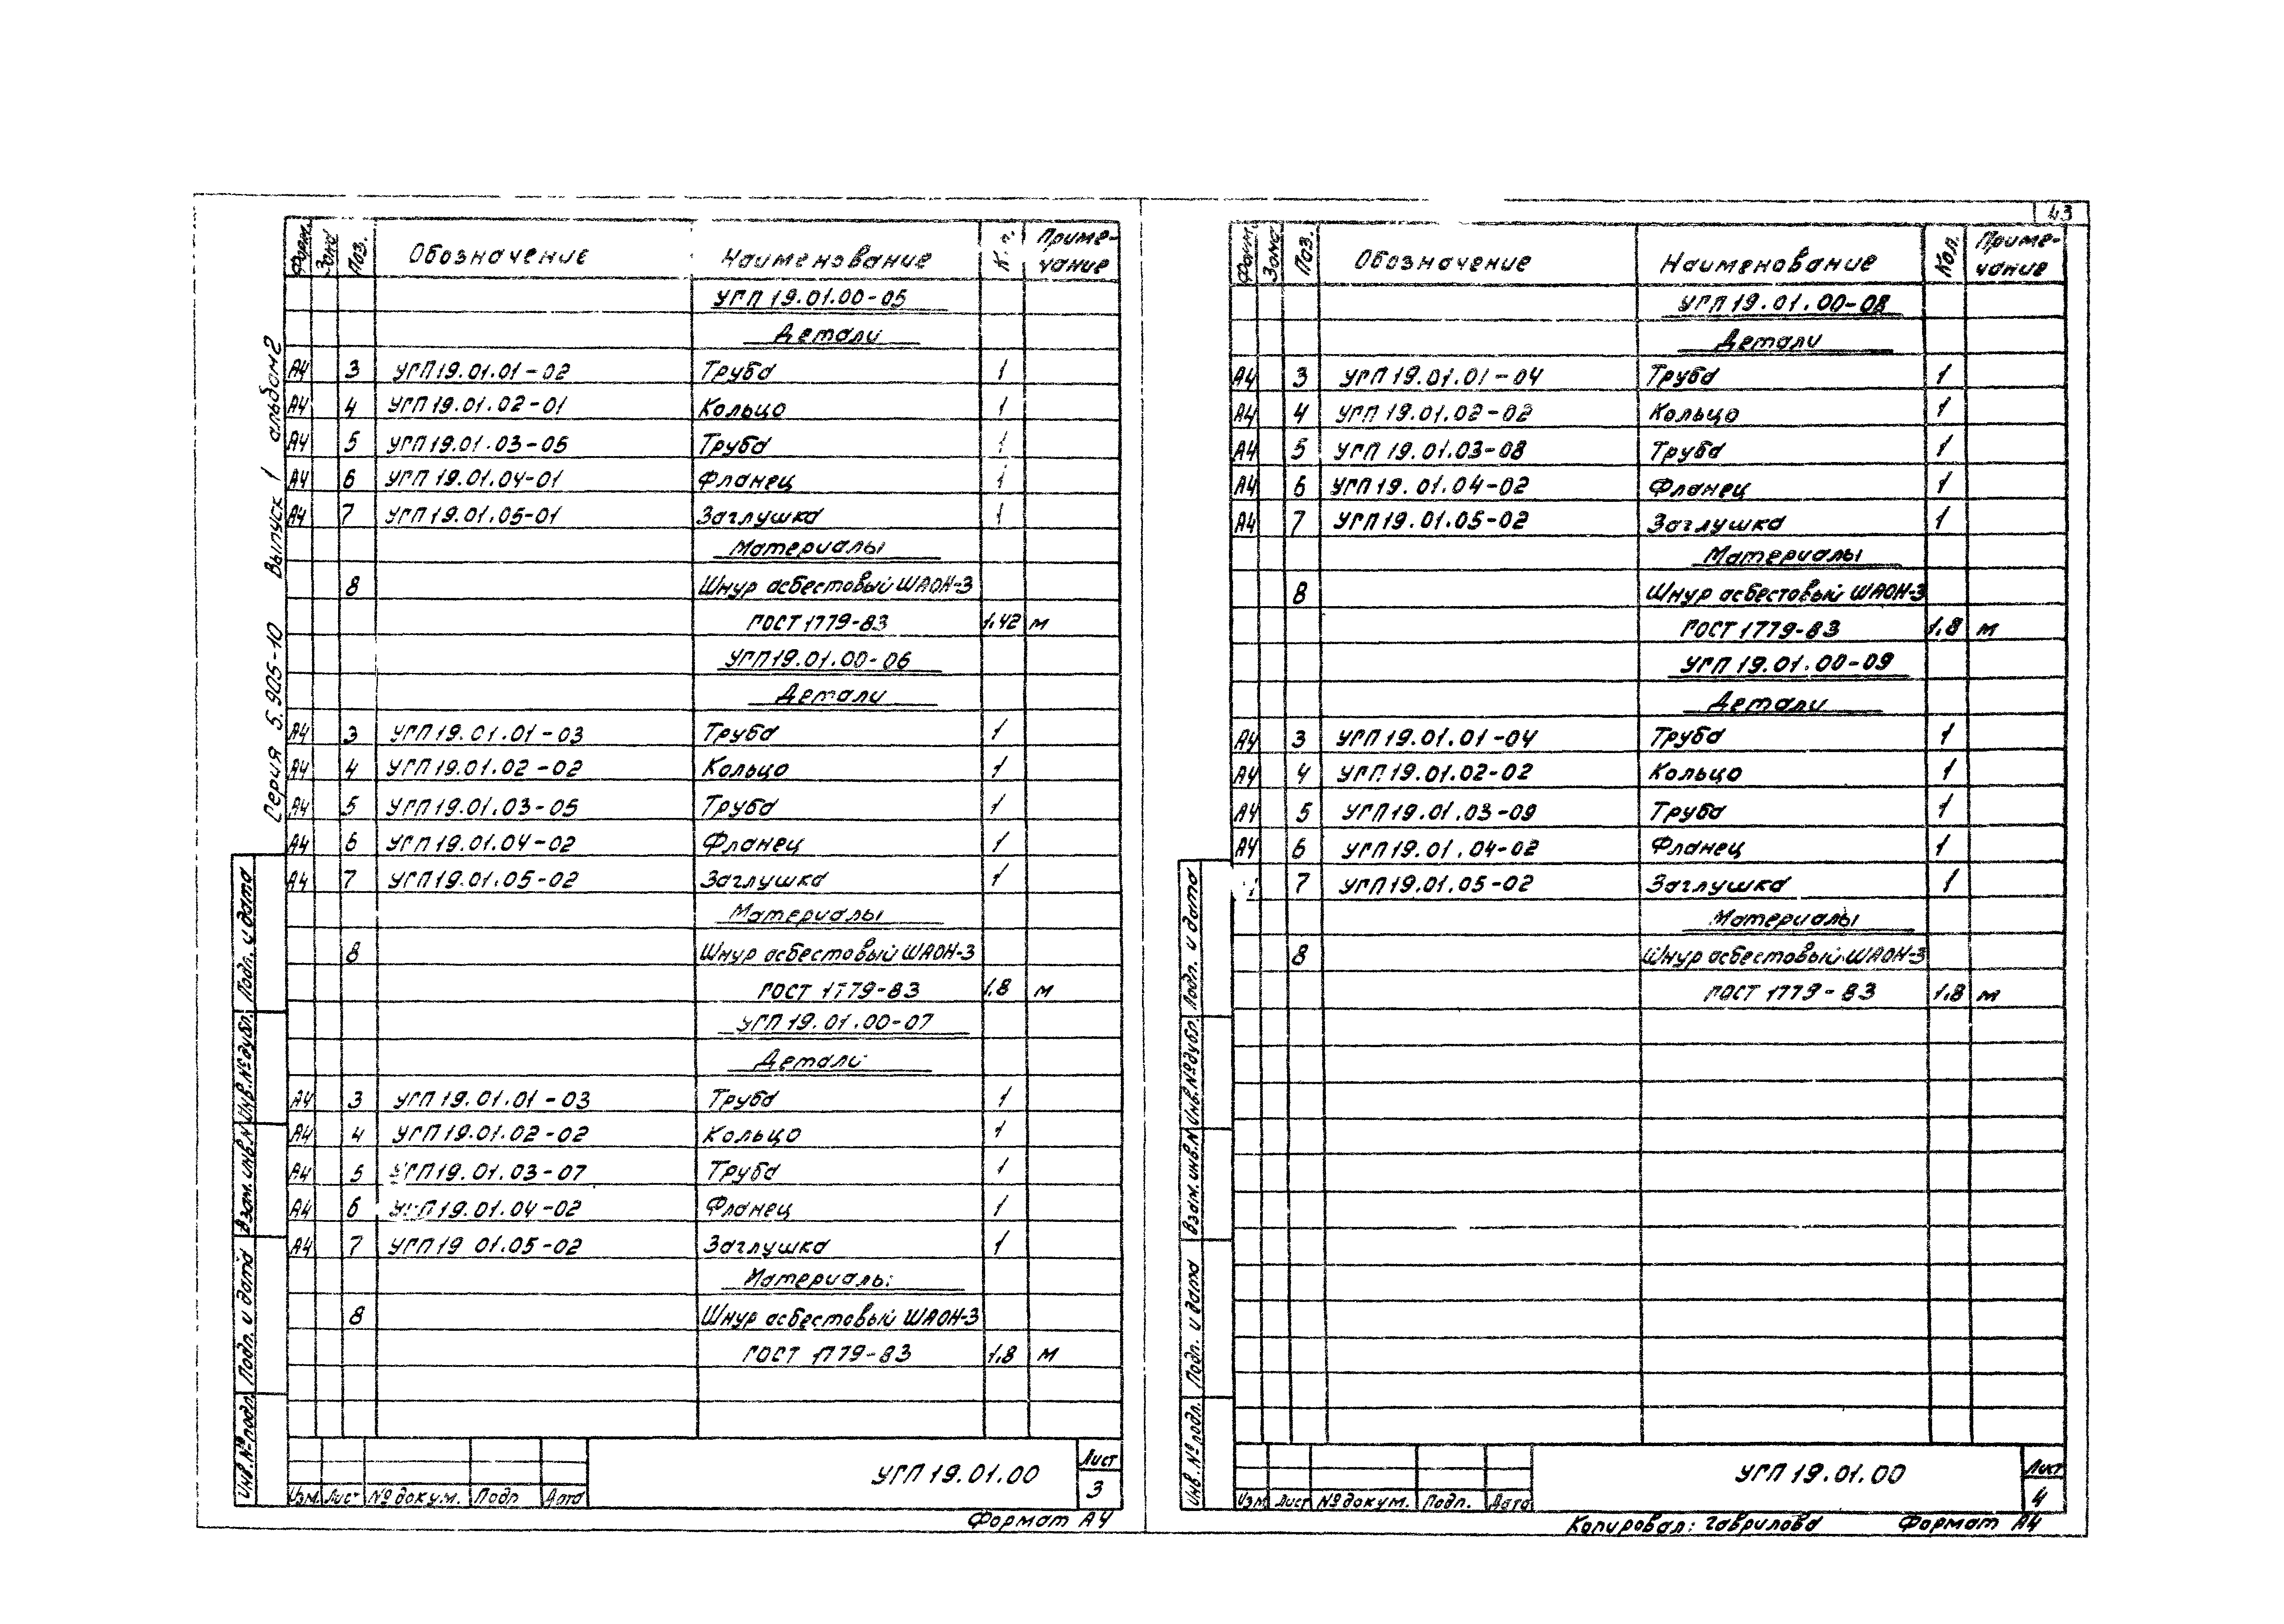 43
Серия 5.905-10 Выпуск 1 альбом 2
Форм. Зона Поз. Обозначение Наименование К. л. Приме-
чание
УГП 19.01.00-05
Детали
А4 3 УГП 19.01.01-02 Труба 1
А4 4 УГП 19.01.02-01 Кольцо 1
А4 5 УГП 19.01.03-05 Труба 1
А4 6 УГП 19.01.04-01 Фланец 1
А4 7 УГП 19.01.05-01 Заглушка 1
Материалы
8 Шнур асбестовый ШАОН-3
ГОСТ 1779-83 1.42 м
УГП 19.01.00-06
Детали
А4 3 УГП 19.01.01-03 Труба 1
А4 4 УГП 19.01.02-02 Кольцо 1
А4 5 УГП 19.01.03-05 Труба 1
А4 6 УГП 19.01.04-02 Фланец 1
А4 7 УГП 19.01.05-02 Заглушка 1
Материалы
8 Шнур асбестовый ШАОН-3
ГОСТ 1779-83 1.8 м
УГП 19.01.00-07
Детали
А4 3 УГП 19.01.01-03 Труба 1
А4 4 УГП 19.01.02-02 Кольцо 1
А4 5 УГП 19.01.03-07 Труба 1
А4 6 УГП 19.01.04-02 Фланец 1
А4 7 УГП 19 01.05-02 Заглушка 1
Материалы
8 Шнур асбестовый ШАОН-3
ГОСТ 1779-83 1.8 м
Инв. № подл. Подп. и дата Взам. инв. № Инв. № дубл. Подп. и дата
Изм. Лист № докум. Подп Дата
УГП 19.01.00
Лист
3
Формат А4
Форм. Зона Поз. Обозначение Наименование Кол. Приме-
чание
УГП 19.01.00-08
Детали
А4 3 УГП 19.01.01-04 Труба 1
А4 4 УГП 19.01.02-02 Кольцо 1
А4 5 УГП 19.01.03-08 Труба 1
А4 6 УГП 19.01.04-02 Фланец 1
А4 7 УГП 19.01.05-02 Заглушка 1
Материалы
8 Шнур асбестовый ШАОН-3
ГОСТ 1779-83 1.8 м
УГП 19.01.00-09
Детали
А4 3 УГП 19.01.01-04 Труба 1
А4 4 УГП 19.01.02-02 Кольцо 1
А4 5 УГП 19.01.03-09 Труба 1
А4 6 УГП 19.01.04-02 Фланец 1
7 УГП 19.01.05-02 Заглушка 1
Материалы
8 Шнур асбестовый ШАОН-3
ГОСТ 1779-83 1.8 м
Инв. № подл. Подп. и дата Взам. инв. № Инв. № дубл. Подп. и дата
Изм Лист № докум. Подп. Дата
УГП 19.01.00
Лист
4
Копировал: Гаврилова Формат А4